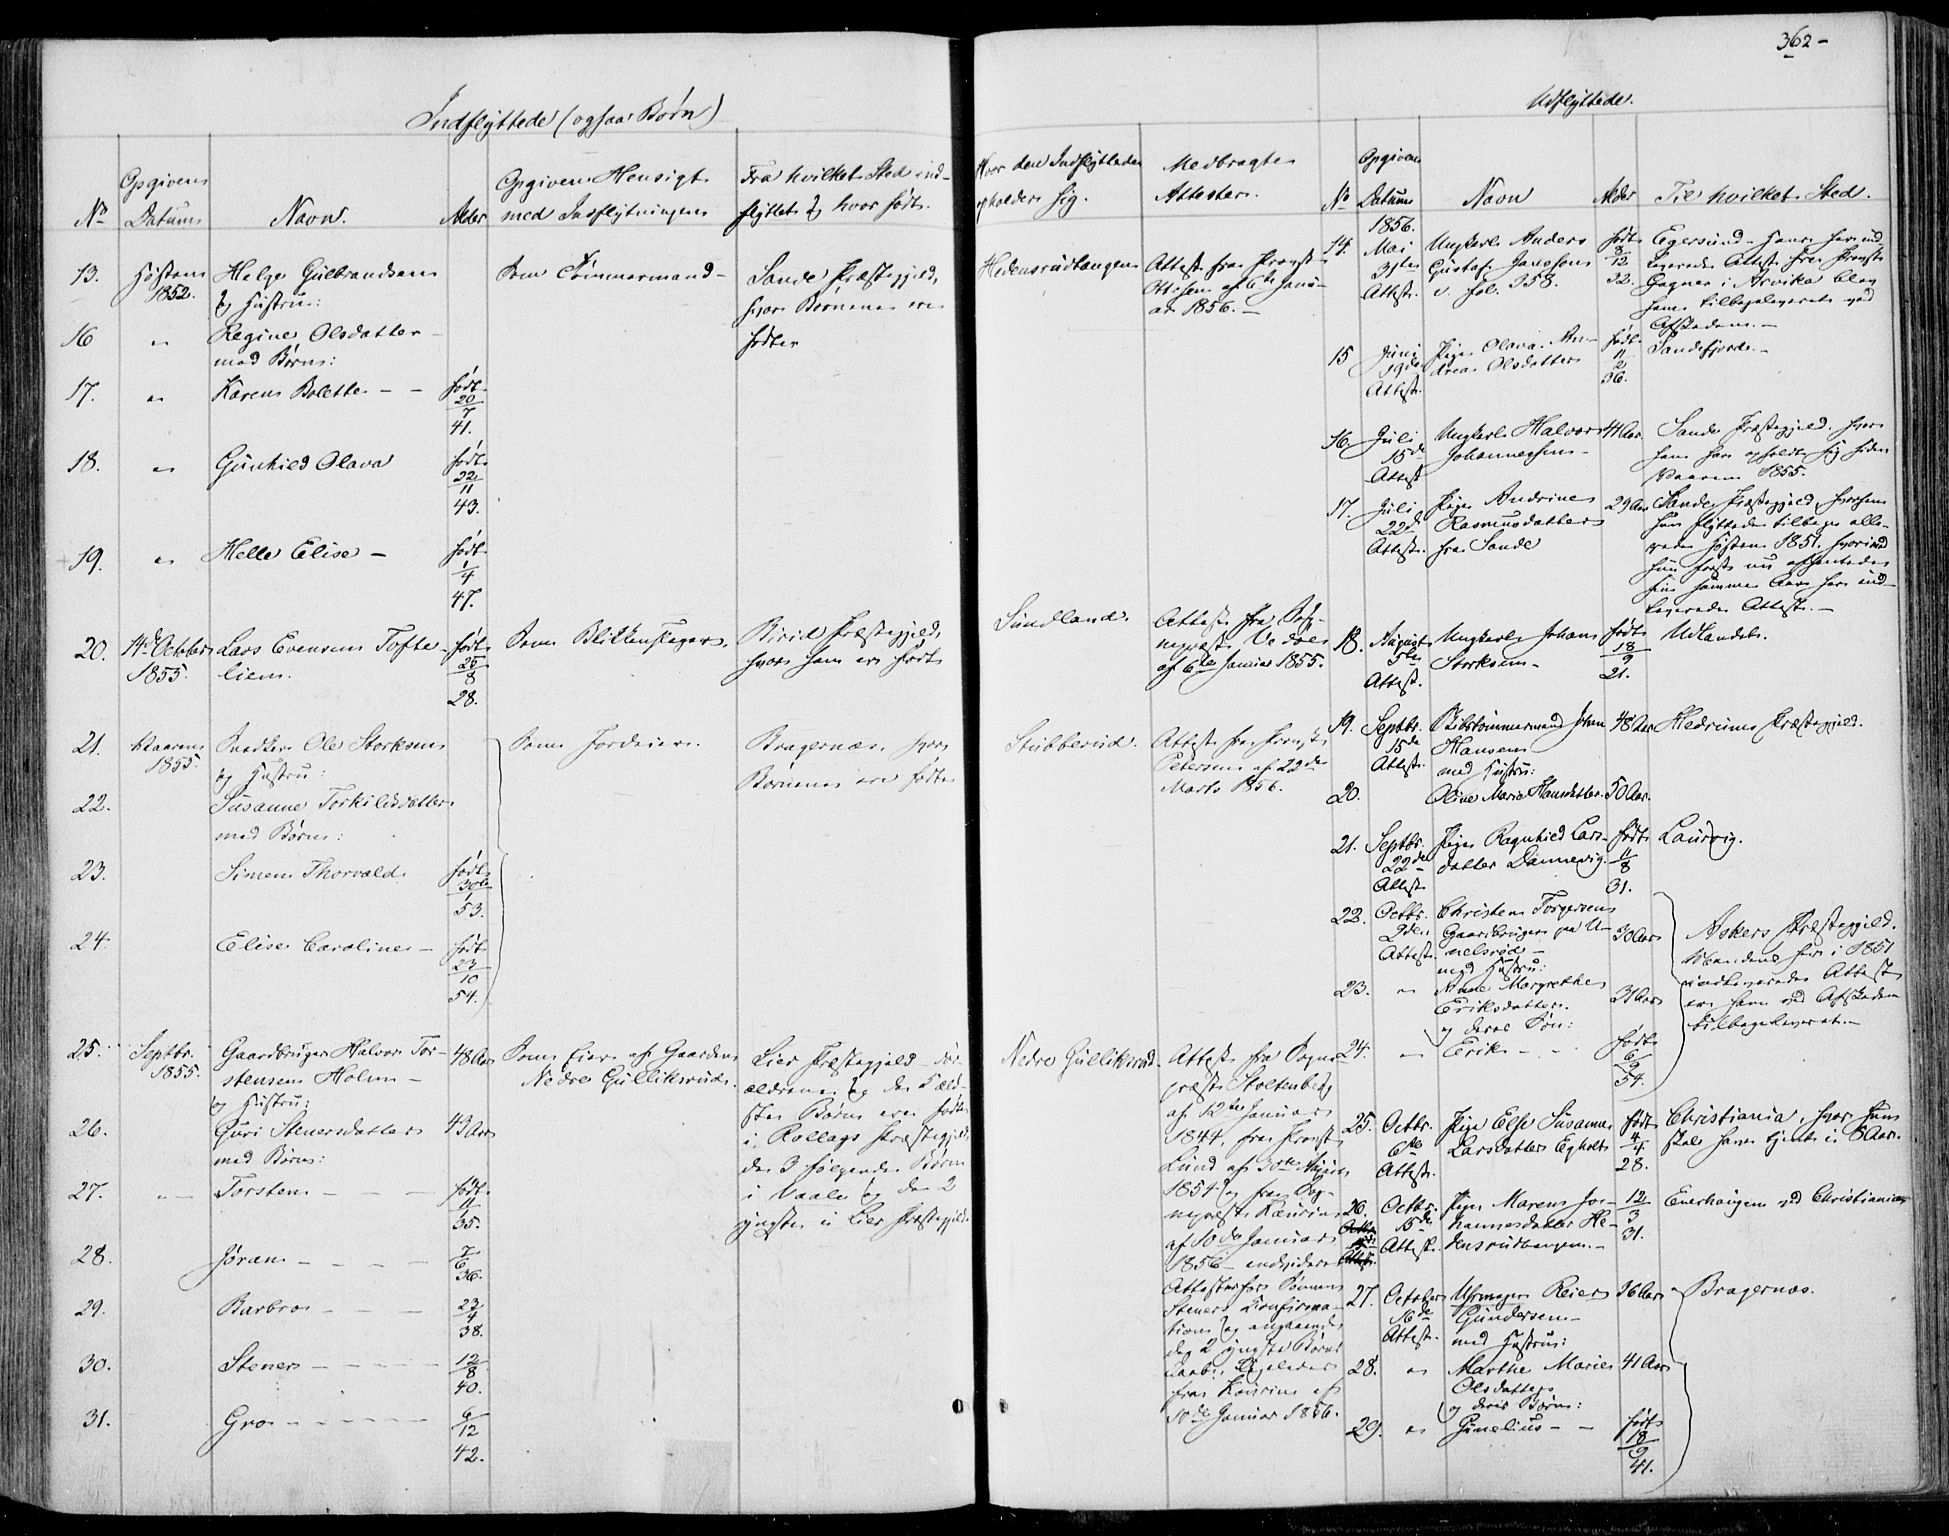 362-
Indflyttede (ogsaa Børn)
Udflyttede.
No
Opgivene
Datum
Navn.
Alder
Opgiven Hensigt
med Indflytningen
Fra hvilket Sted ind-
flyttet og hvor født.
Hvor den Indflyttede
opholder sig.
Medbragte
Attester.
13.
Høsten
1852.
Helge Gulbrandsen
og Hustru:
Som Tømmermand-
Sande Præstegjeld,
hvor Børnene ere
fødte
Hedensrudtangen
Attest fra Provst
af 6te Janu-
ar 1856.-
16
"
Regine Olsdatter
med Børn:
17.
"
Karen Bolette - -
født
20
7
41.
18.
"
Gunhild Olava
født
22
11
43.
19.
"
Helle Elise -
født
1
4
47.
20.
14d October
1855.
Lars Evensen Tofte-
lien.
født
25
8
28.
Som Blikkenslager.
Birid Præstegjeld,
hvor han er født
Sundland.
Attest fra Sog-
nepræst
af 6te Januar 1855.
21.
Vaaren
1855.
Snedker Ole Storksen
og Hustru:
Som Jordeier.
Bragernæs, hvor
Børnene ere fødte
Stubberud.
Attest fra Provst
Petersen af 22de
Marts 1856.
22.
Susanne Torkildsdatter
med Børn:
23.
Simen Thorvald.
født
30te
1
53.
24.
Elise Caroline -
født
23
10
54.
25.
Septbr.
1855.
Gaardbruger Halvor Tor-
stensen Holm -
og Hustru:
48 Aar
Som Eier af Gaarden
Nedre Gulliksrud.
Lier Præstegjeld - For-
ældrene og de 3 æld-
ste Børn ere fødte
i Rollags Præstegjeld,
de 3 følgende Børn
i Vaale og de 2
yngste i Lier Præstegjeld.
Nedre Gulliksrud.
Attest fra Sogne-
præst Stoltenberg
af 12te Januar
1844, fra Provst
Lund af 30te
1854 og fra Sog-
nepræst Kaurin
af 10de Januar
1856 - endvidere
Attest for Sønnen
Steners Konfirma-
tion og angaaende
de 2 yngste Børns
Daab, ligeledes
fra Kaurin af
10de Januar 1856.
26.
Guri Stenersdatter
med Børn:
43 Aar
27.
Torsten - - -
født
11
35.
28.
Jøran - - - -
7
6
36.
29.
Barbro - - -
23
4
38.
30.
Stener - - - -
12
8
40.
31.
Gro - - - - -
6
12
42.
No
Opgivene
Datum
Navn
Alder
Til hvilket Sted.
1856.
14.
Mai
31te
Attest.
Ungkarl Anders
Gustaf Jansson
v. fol. 358.
født
8
12
32.
Egersund - Hans her ind-
leverede Attest fra Provst
Gagner i Arvika blev
ham tilbageleveret ved
Afskeden.-
15
Juni
19de
Attest.
Pige Olava An-
drea Olsdatter
født
11
2
36.
Sandefjord.-
16.
Juli
15de
Attest
Ungkarl Halvor
Johannesen-
41 Aar.
Sande Præstegjeld, hvor
han har opholdt sig siden
Vaaren 1855.
17.
Juli
22de
Attest.
Pige Andrine
Rasmusdatter
fra Sande
29 Aar
Sande Præstegjeld, hvorhen
hun flyttede tilbage alle-
rede Høsten 1851, hvorimod
hun først nu afhentede
sin samme Aar her ind-
leverede Attest.-
18.
August
5te
Attest.
Ungkarl Johan
Storksen-
født
18
9
21.
Udlandet.
19.
Septbr.
15de
Attest.
Skibstømmermand Johan
Hansen
med Hustru:
48 Aar
Hedrums Præstegjeld.
20.
Oline Marie Hansdatter
50 Aar.
21.
Septbr.
22de-
Attest
Pige Ragnhild Lars-
datter Dannevig-
født
11
8
31.
Laurvig.
22.
Octbr.
2den
Attest.
Christen Torgersen
Gaardbruger paa U-
nelsrød-
med Hustru:
30 Aar
Askers Præstegjeld.
Mandens her i 1851
indleverede Attest
er ham ved Afskeden
tilbageleveret.-
23.
"
Anne Margrethe
Eriksdatter
og deres Søn:
31 Aar
24.
"
Erik - -
født
6
9
54.
25.
Octbr.
6te
Attest.
Pige Else Susanne
Larsdatter Egholt
født
4
4
28.
Christiania, hvor hun
skal have tjent i 8 Aar.
26.
Octbr.
15de
Attest.
Pige Maren Jo-
hannesdatter He-
densrudtangen.-
12
3
31.
Enerhaugen ved Christiania
27.
October
16de
Attest.
Uhrmager Reier
Gundersen-
med Hustru:
36 Aar
Bragernæs.
28.
"
Marthe Marie
Olsdatter
og deres Børn:
41 Aar
29.
"
Gunelius - -
født
18
9
41.